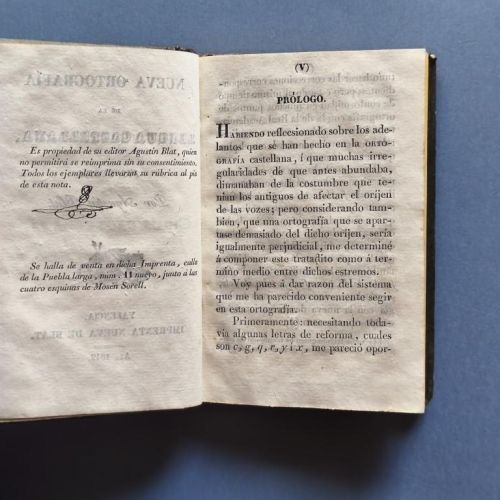 Es propiedad de su editor Agustin Blat, quien
no permitirá se reimprima sin su consentimiento.
Todos los ejemplares llevarán su rúbrica al pie
de esta nota.
Se halla de venta en dicha Imprenta, calle
de la Puebla larga, núm. 11 nuevo, junto á las
cuatro esquinas de Mosén Sorell.
(V)
PRÓLOGO.
HABIENDO reflecsionado sobre los ade-
lantos que se han hecho en la ORTO-
GRAFÍA castellana, í que muchas irre-
gularidades de que antes abundaba,
dimanaban de la costumbre que te-
nian los antiguos de afectar el oríjen
de las vozes; pero considerando tam-
bien, que una ortografía que se apar-
tase demasiado del dicho oríjen, sería
igualmente perjudicial, me determiné
á componer este tratadito como á tér-
mino medio entre dichos estremos.
Voy pues á dar razon del sistema
que me ha parecido conveniente segir
en esta ortografía.
Primeramente: necesitando toda-
vía algunas letras de reforma, cuales
son c, g, q, r, y í x, me pareció opor-